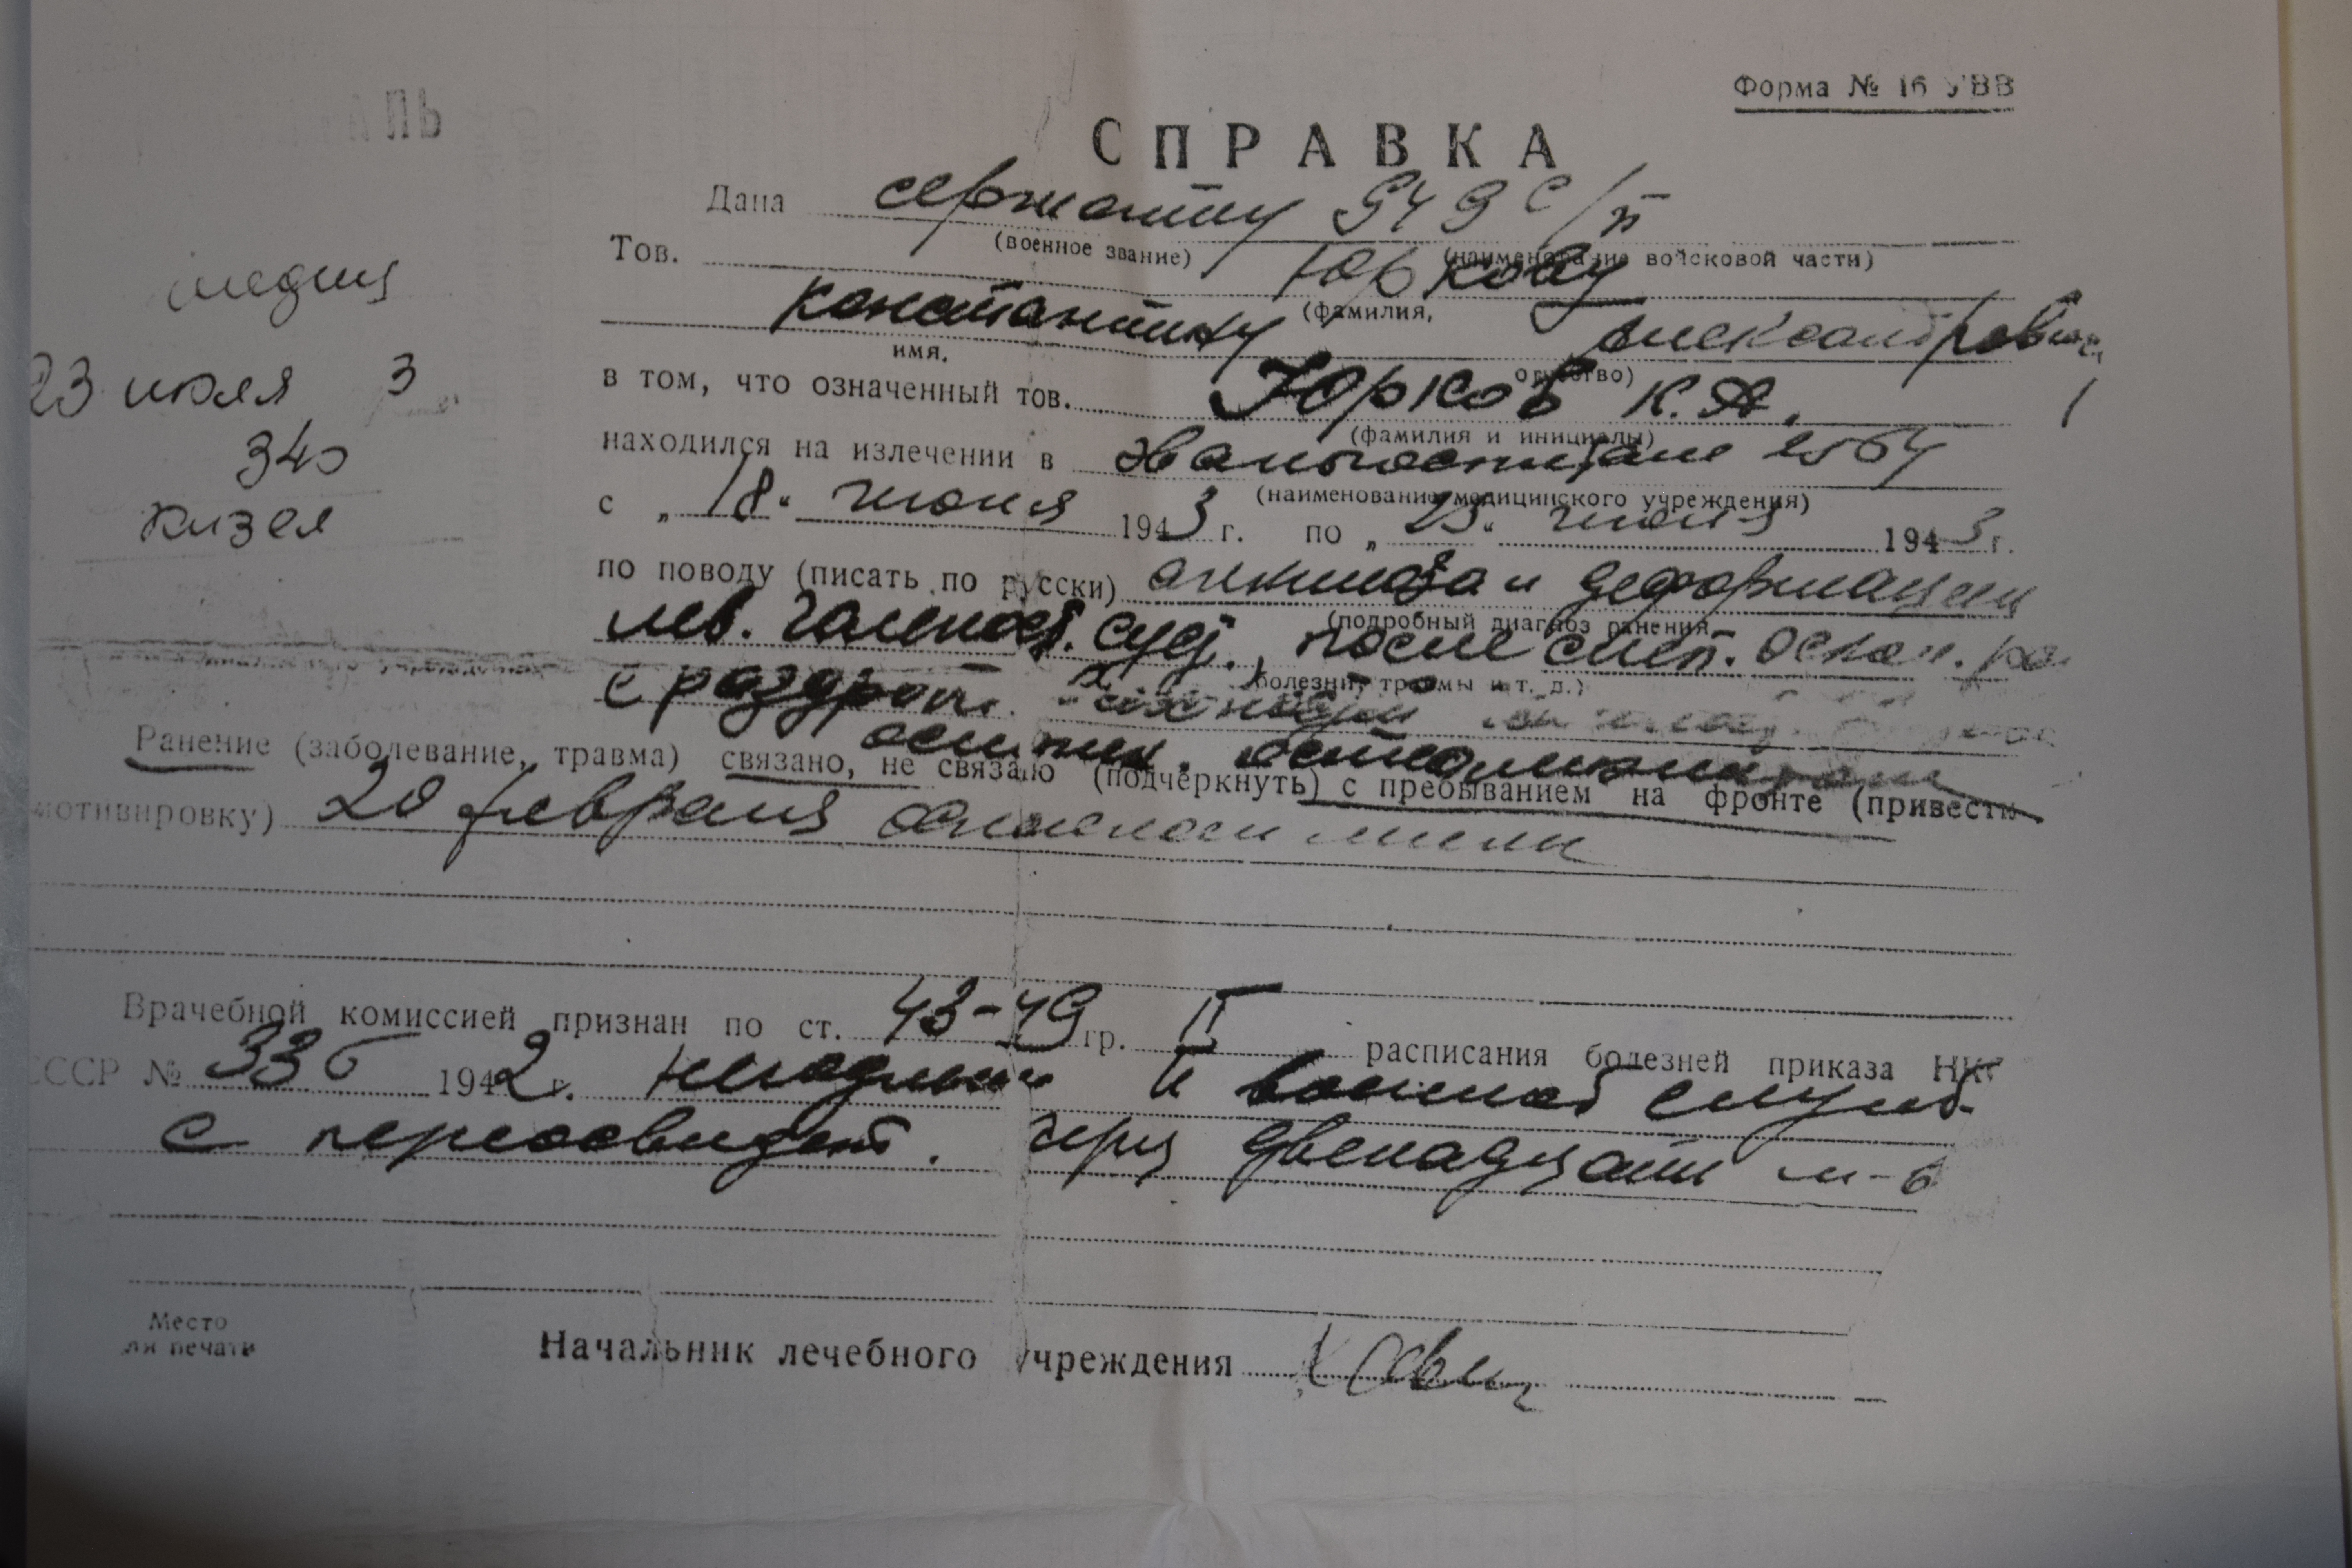 Форма № 16 УВВ
СПРАВКА
Дана сержанту 949 с/п
(военное звание) (наименование войсковой части)
Тов. Юркову
(фамилия,
Константину Александрович
имя, отчество)
23 июля 3 г.
в том, что означенный тов. Юрков К. А.
(фамилия и инициалы)
340
находился на излечении в эвакогоспитале 2564
(наименование медицинского учреждения)
Кизел
с „18“ июня 1943 г. по „23“ июля 1943 г.
по поводу (писать по русски) анкилоза и деформации
(подробный диагноз ранения,
лев. голеност. суст., после слеп. оскол. ра
болезни, травмы и т. д.)
с раздробл.
остеомиелит
Ранение (заболевание, травма) связано, не связано (подчеркнуть) с пребыванием на фронте (привести
мотивировку) 20 февраля осколком мины
Врачебной комиссией признан по ст. 43-49 гр. II расписания болезней приказа НК
СССР № 336 1942 г. негодным к военной служб.
с переосвидет. через двенадцать м-в
Место
для печати
Начальник лечебного учреждения